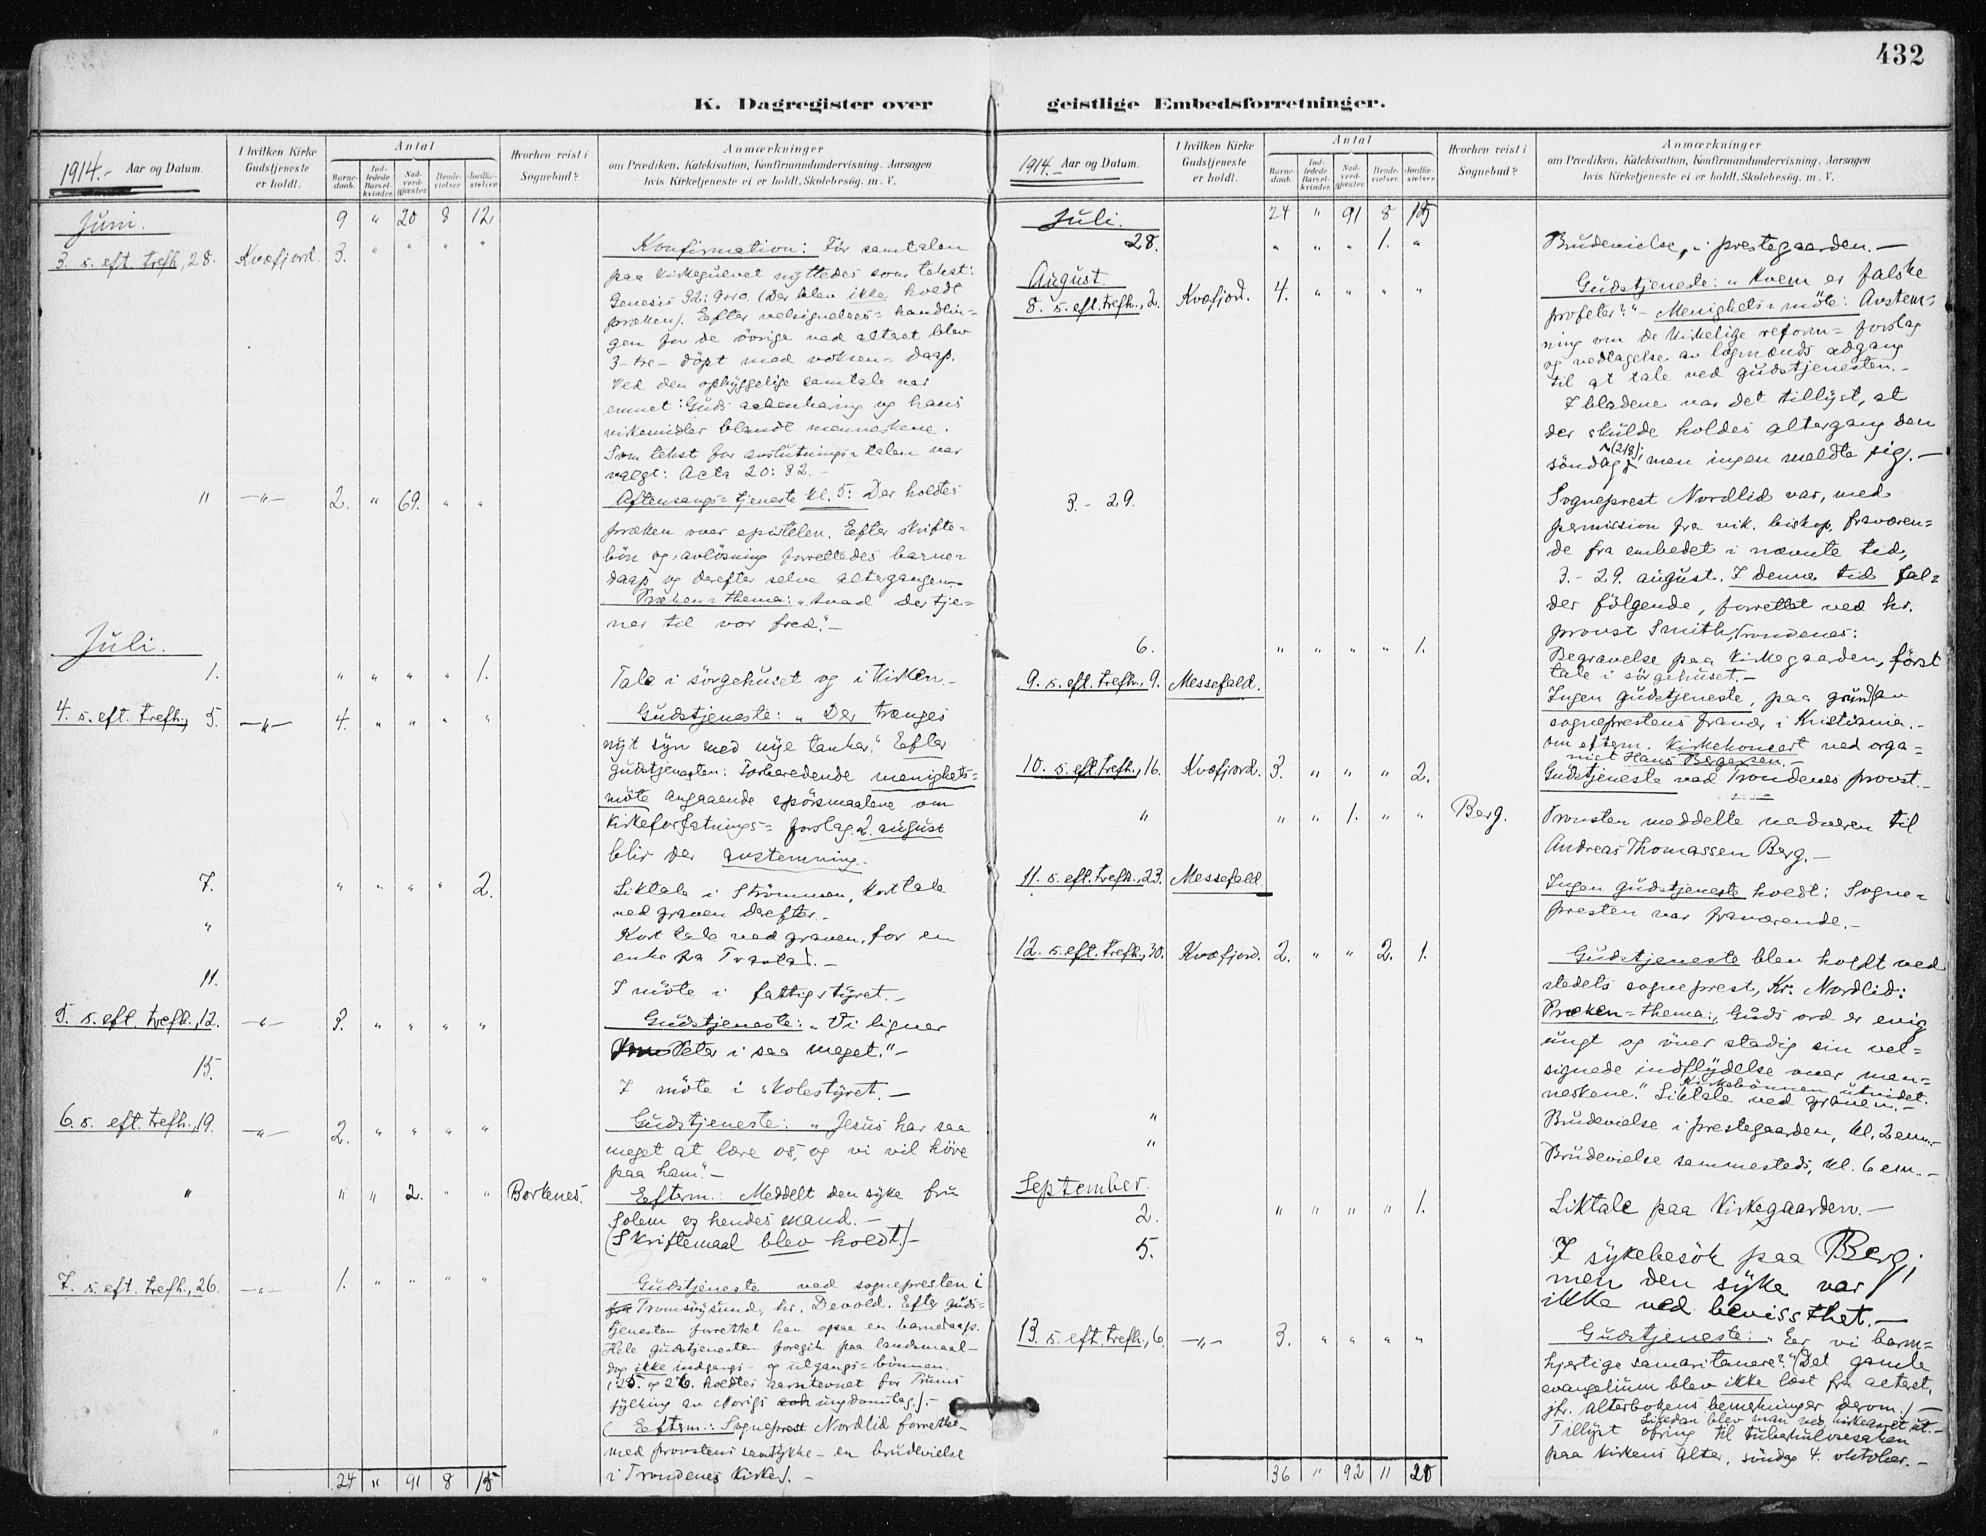 432
K. Dagregister over geistlige Embedsforretninger.
1914.- Aar og Datum.
I hvilken Kirke Gudstjeneste er holdt.
Antal
Barnedaab.
Indledede Barselkvinder.
Nadverdgjester.
Brudevielser.
Jordfæstelser.
Hvorhen reist i Sognebud?
Anmærkninger
om Prædiken, Katekisation, Konfirmandundervisning, Aarsagen
hvis Kirketjeneste ei er holdt, Skolebesøg, m. V.
Juni. 9 " 20 8 12
3. s. eft. trefh., 28. Kvæfjord. 3. " " " " Konfirmation: Før samtalen
paa kirkegulvet nyttedes som tekst:
Genesis 32: 9-10. (Der blev ikke holdt
præken). Efter velsignelses= handlin=
gen for de övrige ved alteret blev
3 - tre - döpt med voksen= daap.
Ved den opbyggelige samtale var
emnet: Guds aabenbaring og hans
virkemidler blandt menneskene.
Som tekst for avslutnings= talen var
valgt: Acta 20: 32. -
" -"- 2. " 69. " " Aftensangs= tjeneste kl. 5: Der holdtes
præken over epistelen. Efter skrifte=
bön og avlösning forrettedes barne=
daap og derefter selve altergangen.-
Præken= thema: "Hvad der tje=
ner til vor fred." -
Juli.
1. " " " " 1. Tale i sörgehuset og i kirken. -
4. s. eft. trefh., 5. -"- 4. " " " " Gudstjeneste: "Der trænges
nyt syn med nye tanker." Efter
gudstjenesten: Forberedende menighets=
möte angaaende spörsmaalene om
kirkeforfatnings= forslag. 2. august
blir der avstemning.
7. " " " " 2. Liktale i Strömmen, kort tale
ved graven derefter. -
" Kort tale ved graven, for en
enke fra Trastad. -
11. I möte i fattigstyret. -
5. s. eft. trefh., 12. -"- 3. " " " " Gudstjeneste: "Vi ligner
Peter i saa meget." -
15. I möte i skolestyret. -
6. s. eft. trefh., 19. -"- 2. " " " " Gudstjeneste: "Jesus har saa
meget at lære os, og vi vil höre
paa ham". -
" " " 2. " " Borkenes. Efterm.: Meddelt den syke fru
Solem og hendes mand. -
(Skriftemaal blev holdt.) -
7. s. eft. trefh., 26. -"- 1. " " " " Gudstjeneste ved sognepresten i
Tromsöysund, hr. Devold. Efter guds=
tjenesten forrettet han ogsaa en barnedaap.
Hele gudstjenesten foregik paa landsmaal -
dog ikke indgangs- og utgangs= bönnen.
(25. og 26. holdtes aarsstevnet for Troms
fylking av Norigs ungdomslag). -
" (Efterm.: Sogneprest Nordlid forrettet -
med provstens samtykke - en brudevielse
i Trondenes kirke). -
24 " 91 8 15
1914.- Aar og Datum.
I hvilken Kirke Gudstjeneste er holdt.
Antal
Barnedaab.
Indledede Barselkvinder.
Nadverdgjester.
Brudevielser.
Jordfæstelser.
Hvorhen reist i Sognebud?
Anmærkninger
om Prædiken, Katekisation, Konfirmandundervisning, Aarsagen
hvis Kirketjeneste ei er holdt, Skolebesøg, m. V.
Juli. 24 " 91 8 15
28. " " " 1. " Brudevielse, i prestegaarden. -
August.
8. s. eft. trefh., 2. Kvæfjord. 4. " " " " Gudstjeneste: "Hvem er falske
profeter?" - Menighets= möte: Avstem=
ning om de kirkelige reform= forslag
og vedtagelse av lægmænds adgang
til at tale ved gudstjenesten. -
I bladene var det tillyst, at
der skulde holdes altergang den
söndag (2/8), men ingen meldte sig. -
3. - 29. Sogneprest Nordlid var, med
permission fra vik. biskop, fraværen=
de fra embedet i nævnte tid,
3. - 29. august. I denne tid fal=
der fölgende, forrettet ved hr.
provst Smith, Trondenes:
6. " " " " 1. Begravelse paa kirkegaarden, först
tale i sörgehuset. -
9. s. eft. trefh., 9. Messefald. Ingen gudstjeneste, paa grund an
sogneprestens fravær i Kristiania. -
om efterm. Kirkekonsert ved orga=
nist Hans Bergersen. -
10. s. eft. trefh., 16. Kvæfjord. 3. " " " 2. Gudstjeneste ved Trondenes provst. -
" " " 1. " " Berg. Provsten meddelte nadveren til
Andreas Thomassen Berg. -
11. s. eft. trefh., 23. Messefald. Ingen gudstjeneste holdt: Sogne=
presten var fraværende. -
12. s. eft. trefh., 30. Kvæfjord. 2. " " 2. 1. Gudstjeneste blev holdt ved
stedets sogneprest, Kr. Nordlid:
Præken= thema: "Guds ord er evig
ungt og över stadig sin vel=
signede indflydelse over men=
neskene." Kirkebönnen utvidet.
Liktale ved graven. -
" Brudevielse i prestegaarden, kl. 2 em. -
" Brudevielse sammesteds, kl. 6 em. -
September.
2. " " " " 1. Liktale paa kirkegaarden. -
5. I sykebesök paa Berg;
men den syke var
ikke ved bevissthet. -
13. s. eft. trefh., 6. -"- 3. " " " " Gudstjeneste: "Er vi barm=
hjertige samaritanere?" (Det gamle
evangelium blev ikke læst fra alteret,
jfr. alterbokens bemerkninger derom.) -
Likedan blev man ved kirkeaaret ut. -
Tillyst ofring til tuberkulosesaken
paa kirkens alter, söndag 4. oktober. -
36 " 92 11 20